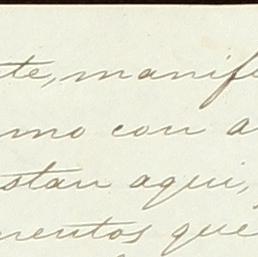 te, manif
mo con a
stan aqui,
mentos que